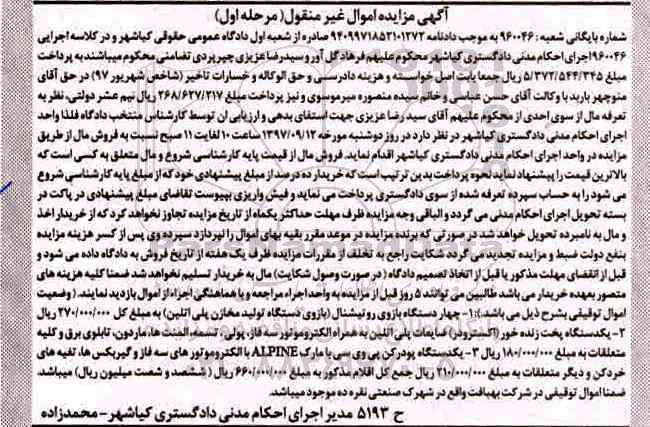 آگهی مزایده اموال غیر منقول( مرحله اول)
شماره بایگانی شعبه : ۹۶۰۰۴۶ به موجب دادنامه ۹۴۰۹۹۷۱۸۵۲۱۰۱۲۷۲ صادره از شعبه اول دادگاه عمومی حقوقی کیاشهر و در کلاسه اجرایی
۹۶۰۰۴۶ اجرای احکام مدنی دادگستری کیاشهر محکوم علیهم فرهاد گل آور و سیدرضا عزیزی چپرپردی تضامنی محکوم میباشند به پرداخت
مبلغ ۵/۳۷۲/۵۴۴/۳۴۵ ریال جمعا بابت اصل خواسته و هزینه دادرسی و حق الوکاله و خسارات تاخیر (شاخص شهریور ۹۷) در حق آقای
منوچهر باربد با وکالت آقای حسن عباسی و خانم سیده منصوره میرموسوی و نیز پرداخت مبلغ ۲۶۸/۶۲۷/۲۱۷ ریال نیم عشر دولتی، نظر به
تعرفه مال از سوی احدی از محکوم علیهم آقای سید رضا عزیزی جهت استفای بدهی و ارزیابی ان توسط کارشناس منتخب دادگاه فلذا واحد
اجرای احکام مدنی دادگستری کیاشهر در نظر دارد در روز دوشنبه مورخه ۱۳۹۷/۰۹/۱۲ ساعت ۱۰ لغایت ۱۱ صبح نسبت به فروش مال از طریق
مزایده در واحد اجرای احکام مدنی دادگستری کیاشهر اقدام نماید. فروش مال از قیمت پایه کارشناسی شروع و مال متعلق به کسی است که
بالاترین قیمت را پیشنهاد نماید نحوه پرداخت بدین ترتیب است که خریدار ده درصد از مبلغ پیشنهادی خود که از مبلغ پایه کارشناسی شروع
می شود را به حساب سپرده تعرفه شده از سوی دادگستری پرداخت می نماید و فیش واریزی بپیوست تقاضای مبلغ پیشنهادی در پاکت در
بسته تحویل اجرای احکام مدنی می گردد و الباقی وجه مزایده ظرف مهلت حداکثر یکماه از تاریخ مزایده تجاوز نخواهد کرد که از خریدار اخذ
و مال به نامبرده تحویل خواهد شد در صورتی که برنده مزایده در موعد مقرر بقیه بهای اموال را نپردازد سپرده وی پس از کسر هزینه مزایده
بنفع دولت ضبط و مزایده تجدید می گردد شکایت راجع به تخلف از مقررات مزایده ظرف یک هفته از تاریخ فروش به دادگاه داده می شود و
قبل از انقضای مهلت مذکور یا قبل از اتخاذ تصمیم دادگاه ( در صورت وصول شکایت) مال به خریدار تسلیم نخواهد شد ضمنا کلیه هزینه های
متصور بعهده خریدار می باشد طالبین می توانند ۵ روز قبل از مزایده به واحد اجراء مراجعه و با هماهنگی اجراء از اموال بازدید نمایند. ( وضعیت
اموال توقیفی بشرح ذیل می باشد.): ۱- چهار دستگاه بازوی روتیشنال (بازوی دستگاه تولید مخازن پلی اتلین) به مبلغ کل ۲۷۰/۰۰۰/۰۰۰ ریال
۲- یکدستگاه پخت زنده خور (اکسترودر) ضایعات پلی اتلین به همراه الکتروموتور سه فاز، پولی، تسمه، المنت ها، ماردون، تابلوی برق و کلیه
متعلقات به مبلغ ۱۸۰/۰۰۰/۰۰۰ ریال ۳- یکدستگاه پودرکن پی وی سی با مارک ALPINE با الکتروموتور های سه فاز و گیربکس ها، تغیه های
خردکن و دیگر متعلقات به مبلغ ۲۱۰/۰۰۰/۰۰۰ ریال جمع کل اقلام مذکور به مبلغ ۶۶۰/۰۰۰/۰۰۰ ریال (ششصد و شصت میلیون ریال) میباشد.
ضمنا اموال توقیفی در شرکت بهبافت واقع در شهرک صنعتی نقره ده موجود میباشد.
ح ۵۱۹۳ مدیر اجرای احکام مدنی دادگستری کیاشهر- محمدزاده